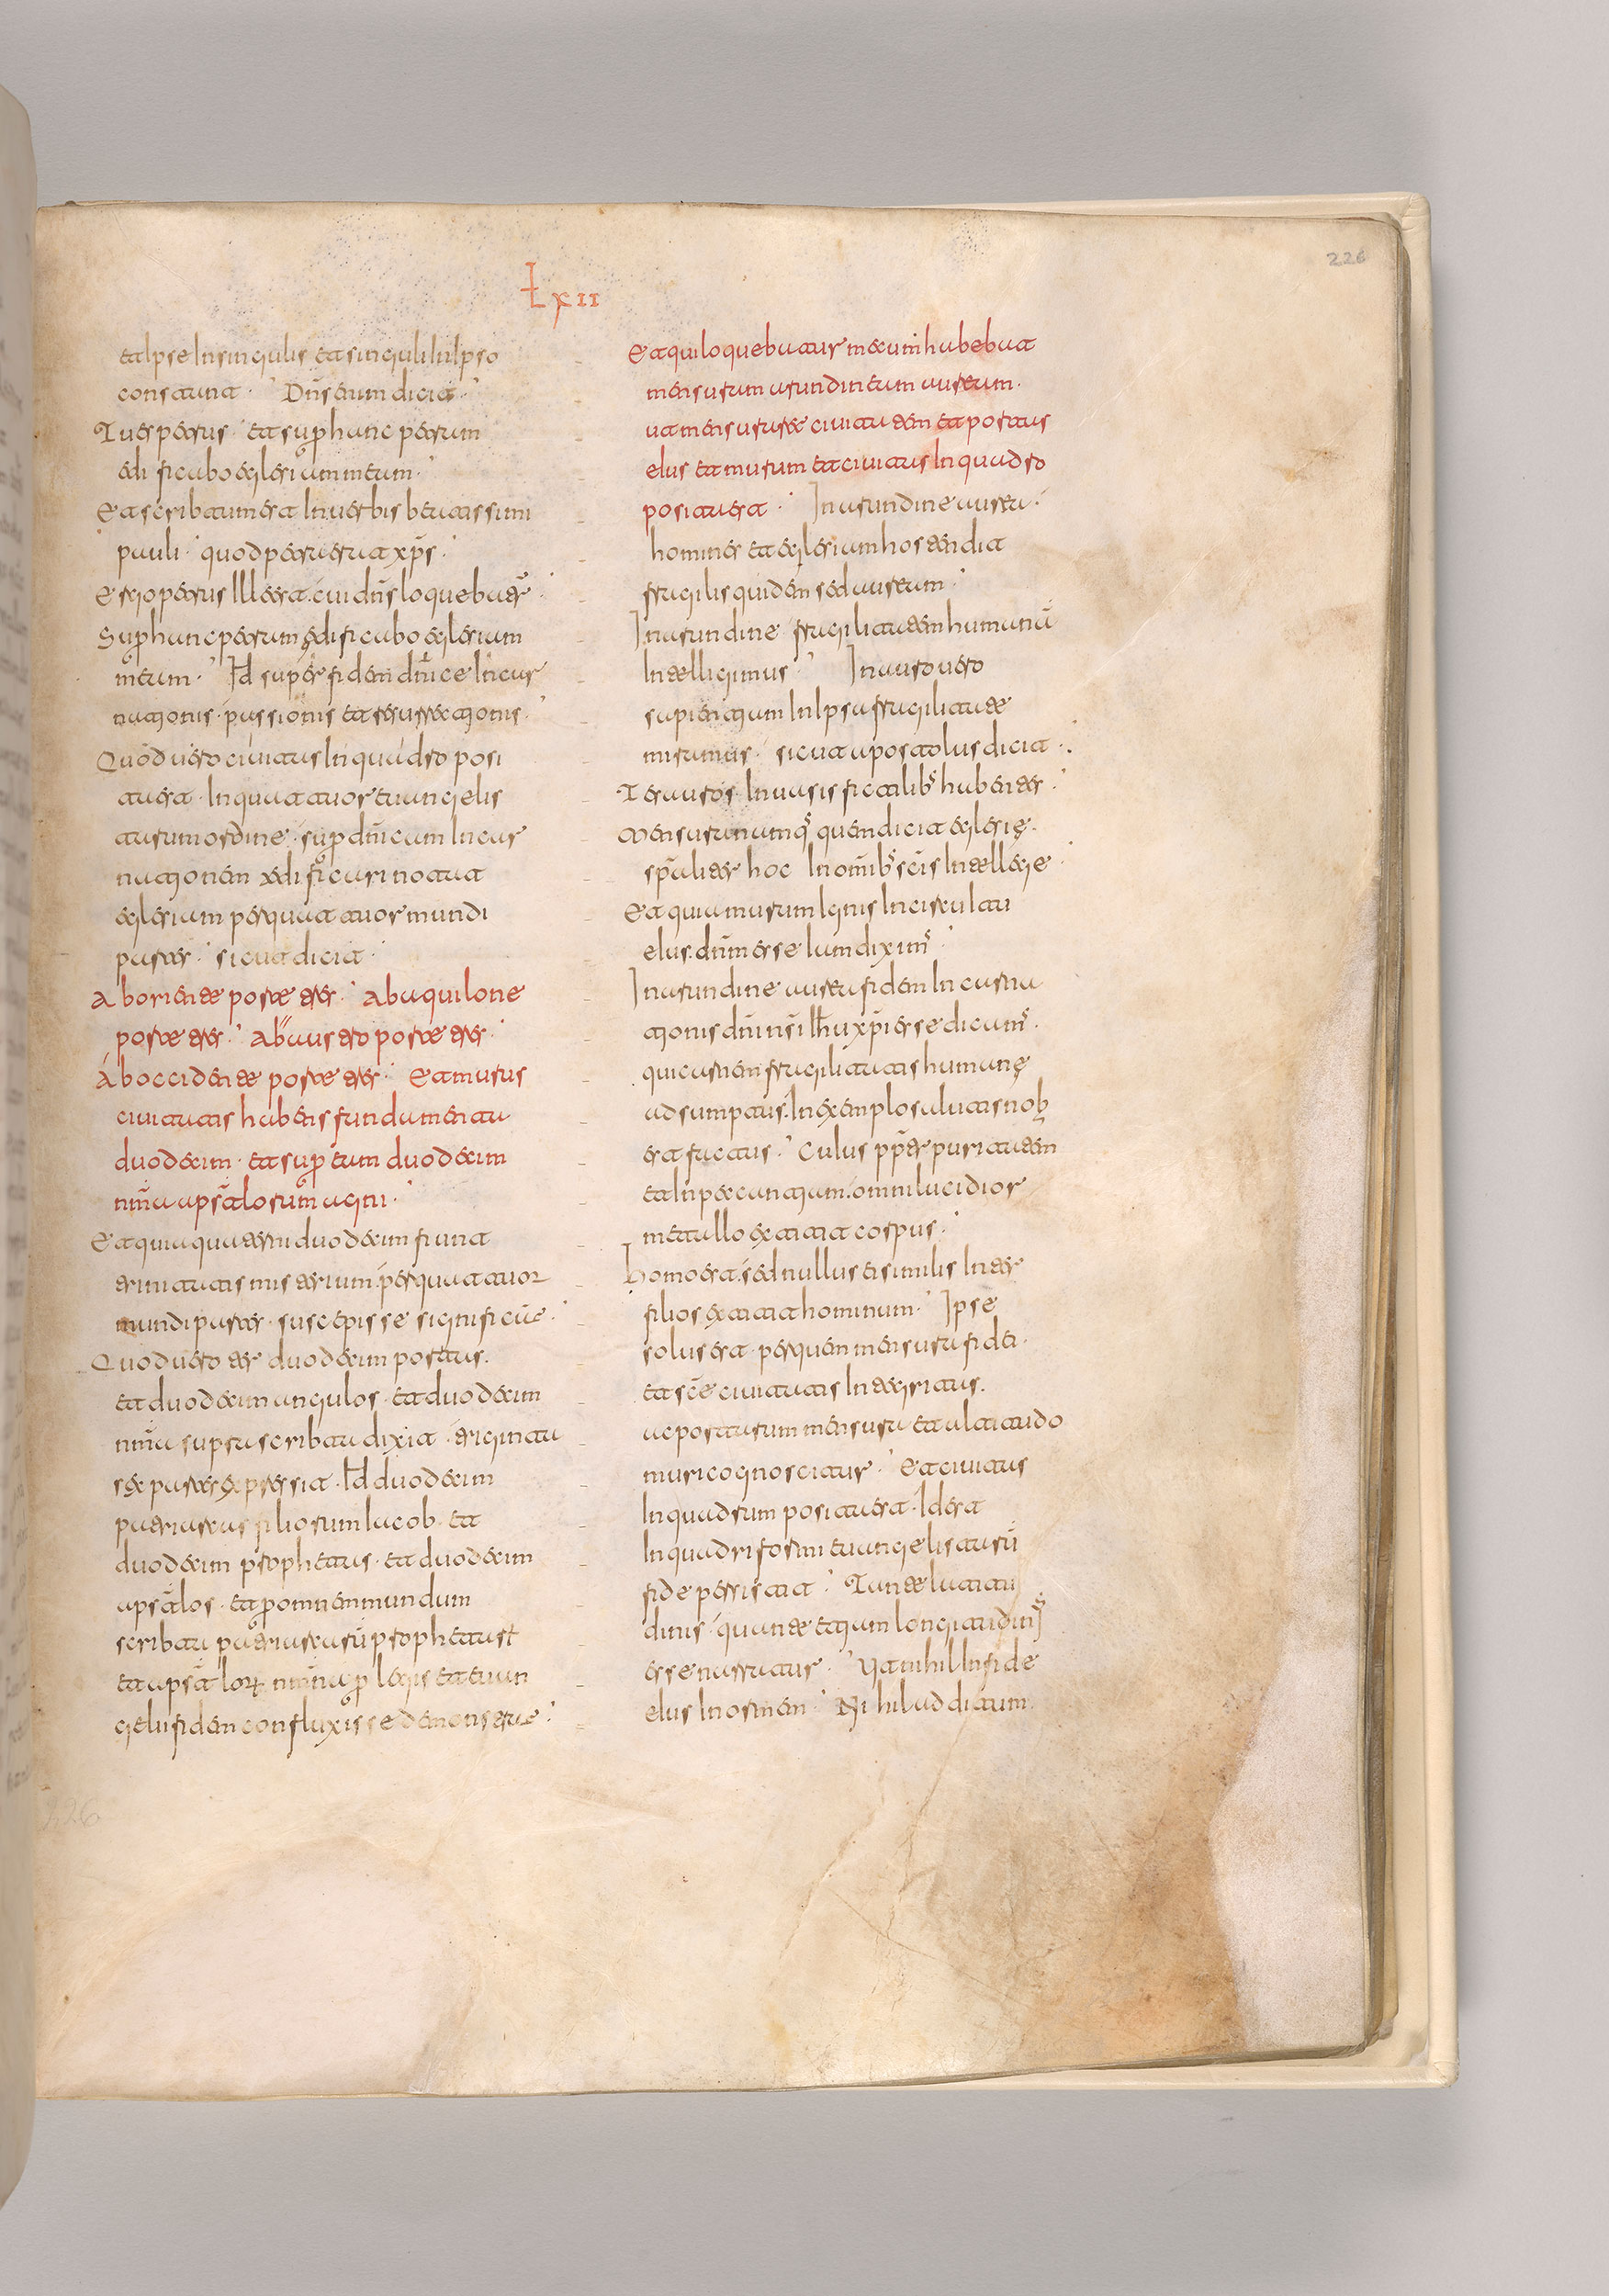 Lxii
226
et Ipse In singulis et singuli In Ipso
constant. Dns̄ enim dicit.
Tu es petrus et sup̄ hanc petram
edificabo eglesiam meam.
Et scribtum est In uerbis beatissimi
pauli. quod petra erat xps̄.
Ergo petrus Ille est. cui dns̄ loquebatr̄.
Sup̄ hanc petram edificabo eglesiam
meam. Id super fidem dnīce Incar
nationis. passionis et resurrectionis.
Quod uero ciuitas In quadro posi
ta est. In quattuor euangelis
tarum ordine. sup̄ dnīcam Incar
nationem edificari notat
eglesiam per quattuor mundi
partes. sicut dicit.
Ab oriente porte tres. Ab aquilone
porte tres. Ab austro porte tres.
Ab occidente porte tres. Et murus
ciuitatis habens fundamenta
duodecim. et sup̄ eum duodecim
nmn̄a apstl̄orum agni.
Et quia quaterni duodecim fiunt
trinitatis misterium. per quattuor
mundi partes. suscepisse significat.
Quod uero ter duodecim portas.
et duodecim angulos. et duodecim
nmn̄a suprascribta dixit. triginta
sex partes expressit. Id duodecim
patriarcas filiorum Iacob. et
duodecim prophetas. et duodecim
apstl̄os. et p̄ omnem mundum
scribta patriarcarū prophetarꝝ
et apstl̄orꝝ nmn̄a p̄ legis et euan
gelii fidem confluxisse demonstrat.
Et qui loquebatur mecum habebat
mensuram arundineam auream.
ut mensuraret ciuitatem et portas
eius et murum et ciuitas In quadro
posita est. In arundine aurea.
homines et eglesiam hostendit
fragiles quidem sed auream.
In arundine fragilitatem humanā
Intelligimus. In auro uero
sapientiam In Ipsa fragilitate
miramur. sicut apostolus dicit.
Tesauros In uasis fictilibs̄ habentes.
Mensura namqs̄ quem dicit eglesię.
spāliter hoc In omnibs̄ scīs Intellege
Et quia murum Ignis In circuitu
eius. dnm̄ esse Iam dixims̄.
In arundine aurea fidem Incarna
tionis dnī nsī Ihū xpī esse dicims̄.
qui carnem fragilitatis humanę
adsumptus. In exemplo salutis nob̄
est factus. Cuius pptr̄ puritatem
et Inpeccantiam. omni lucidior
metallo extitit corpus.
homo est. sed nullus ei similis Inter
filios extitit hominum. Ipse
solus est. per quem mensura fidei.
et scē ciuitatis Integritas.
ac portarum mensura et altitudo
muri cognoscitur. Et ciuitas
In quadrum posita est. Id est
In quadriformi euangelistarū
fide persistit. Tante latitu
dinis. quante etiam longitudinis
esse narratur. Ut nihil In fide
eius Inormem. Nihil additum